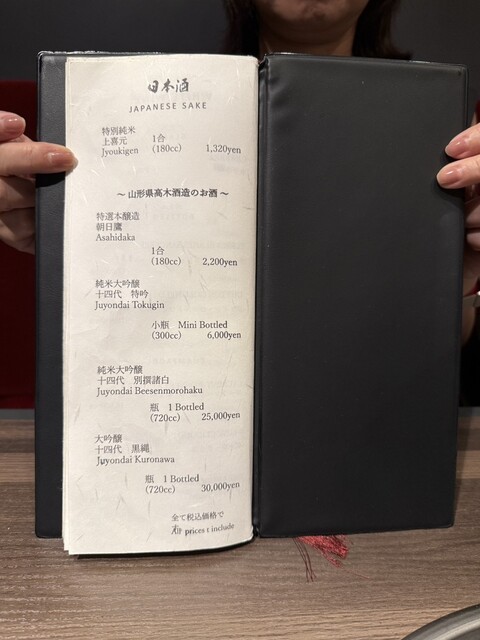 日本酒
JAPANESE SAKE
特別純米
上喜元 1合
Jyoukigen (180cc) 1,320yen
～山形県高木酒造のお酒～
特選本醸造
朝日鷹
Asahidaka
1合
(180cc) 2,200yen
純米大吟醸
十四代 特吟
Juyondai Tokugin
小瓶 Mini Bottled
(300cc) 6,000yen
純米大吟醸
十四代 別撰諸白
Juyondai Beesenmorohaku
瓶 1 Bottled
(720cc) 25,000yen
大吟醸
十四代 黒縄
Juyondai Kuronawa
瓶 1 Bottled
(720cc) 30,000yen
全て税込価格で
prices t include